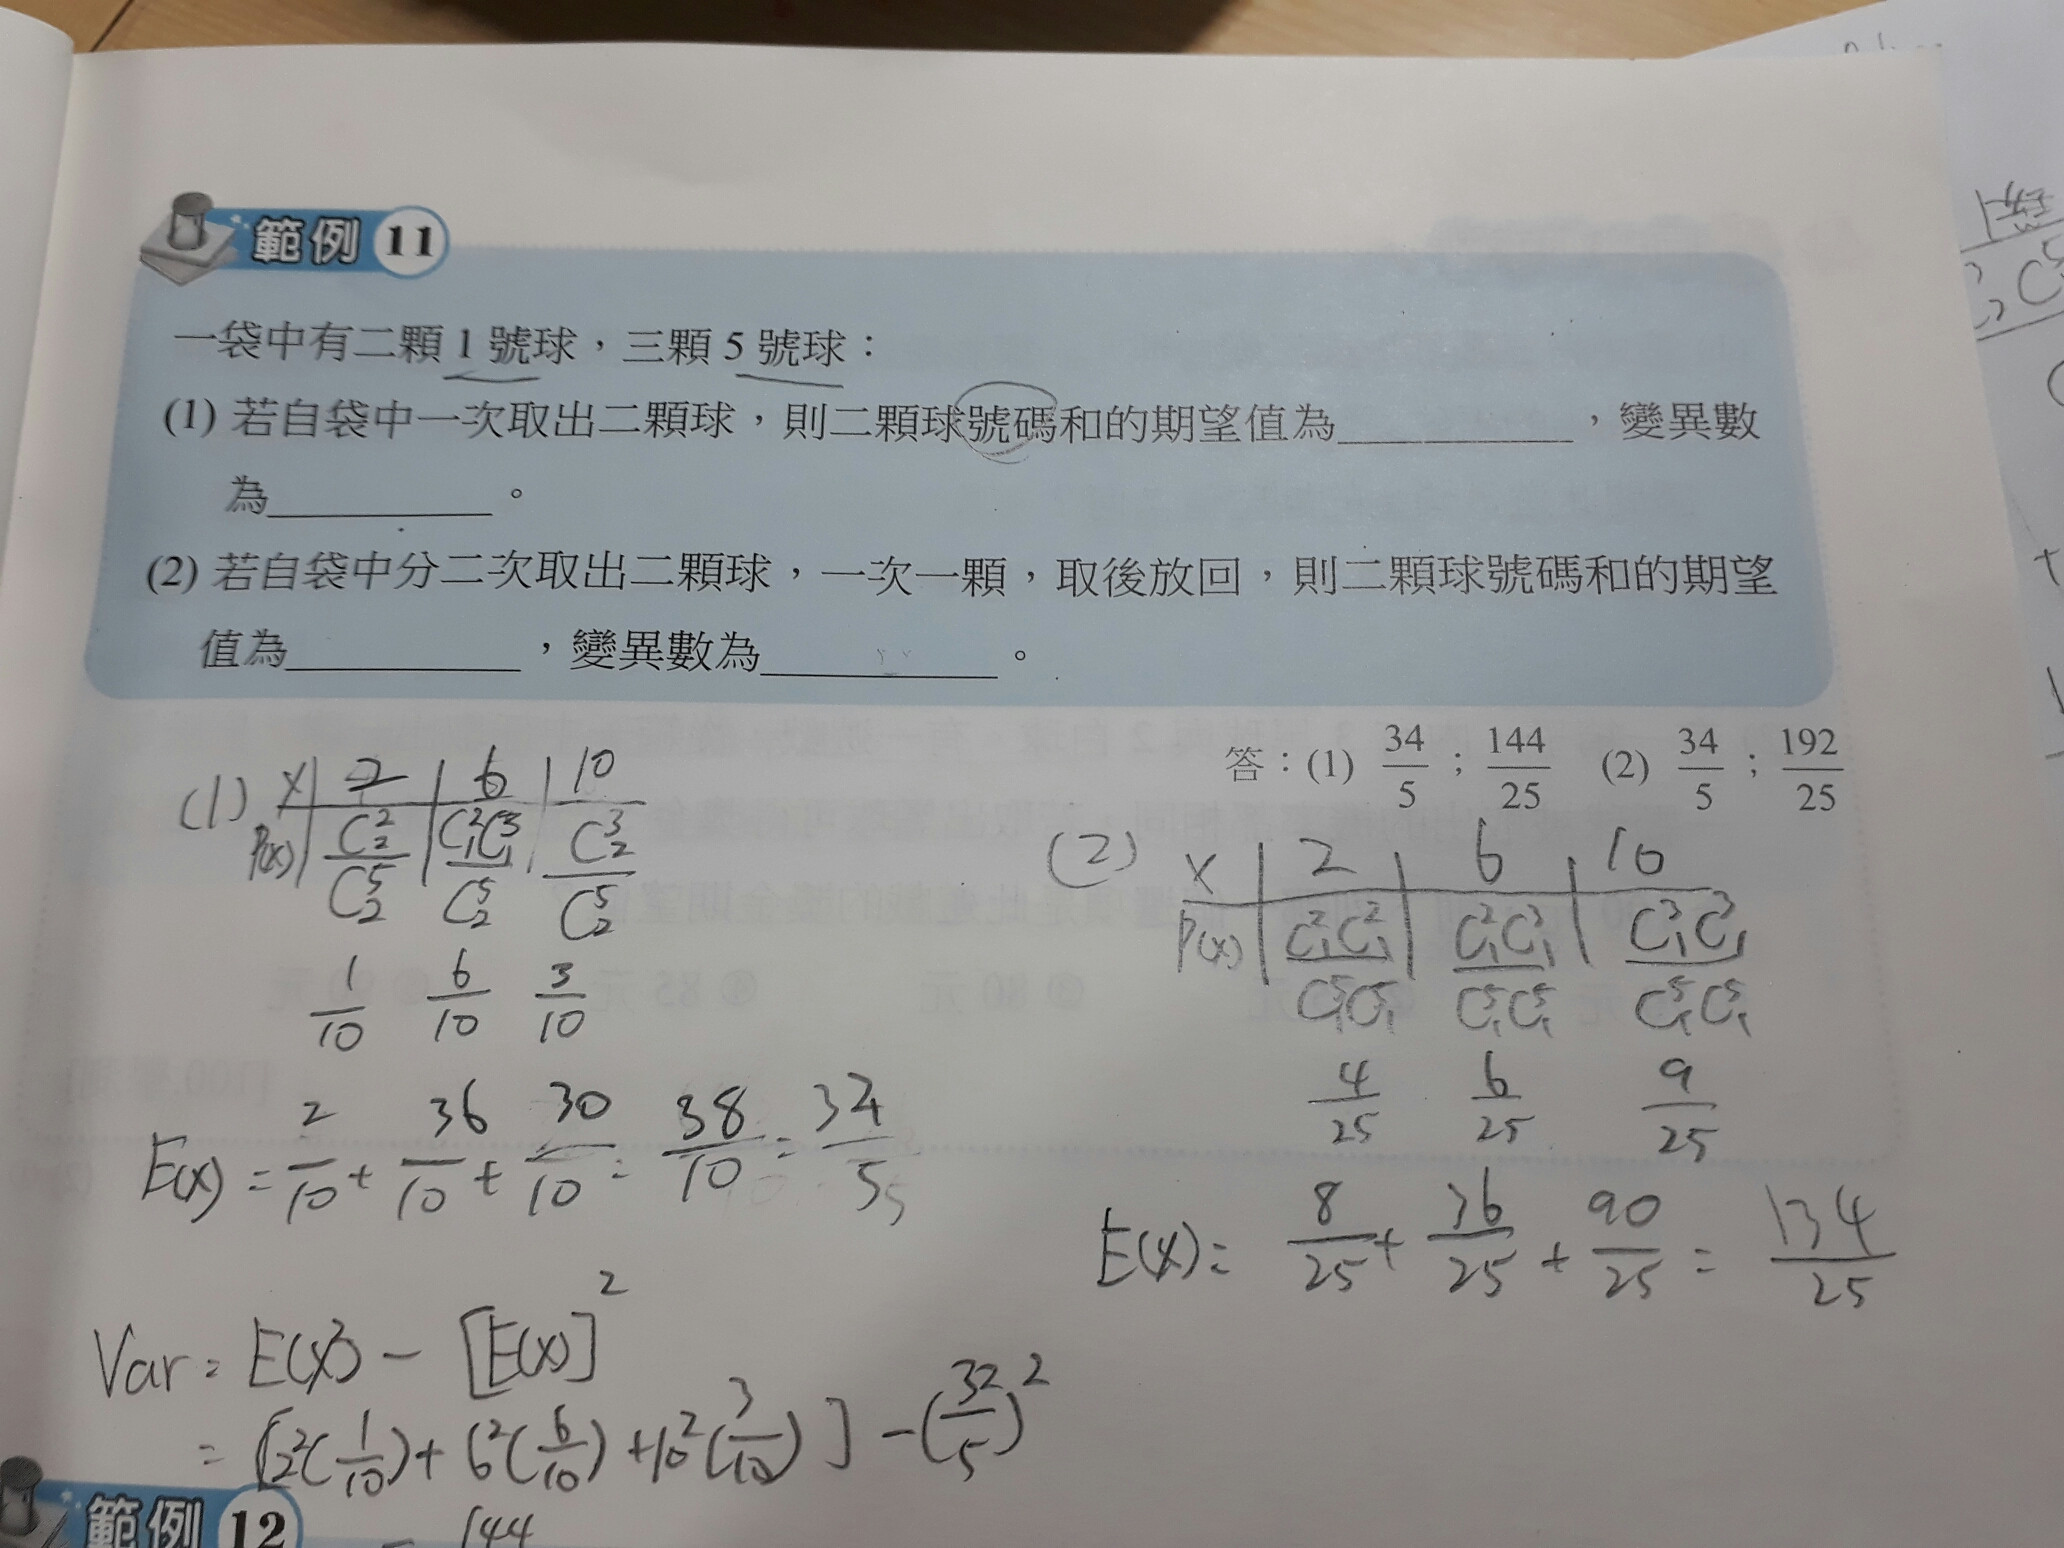 範例 11
一袋中有二顆 1 號球，三顆 5 號球：
(1) 若自袋中一次取出二顆球，則二顆球號碼和的期望值為__________，變異數
為__________。
(2) 若自袋中分二次取出二顆球，一次一顆，取後放回，則二顆球號碼和的期望
值為__________，變異數為__________。
答：(1) 34/5；144/25 (2) 34/5；192/25
(1) X | 2 | 6 | 10
P(x) | C²₂/C⁵₂ | C²₁C³₁/C⁵₂ | C³₂/C⁵₂
1/10 6/10 3/10
E(x) = 2/10 + 36/10 + 30/10 = 38/10 = 34/5
Var = E(x²) - [E(x)]²
= [2²(1/10) + 6²(6/10) + 10²(3/10)] - (32/5)²
= 144
(2) X | 2 | 6 | 10
P(x) | C²₁C²₁/C⁵₁C⁵₁ | C²₁C³₁/C⁵₁C⁵₁ | C³₁C³₁/C⁵₁C⁵₁
4/25 6/25 9/25
E(x) = 8/25 + 36/25 + 90/25 = 134/25
範例 12